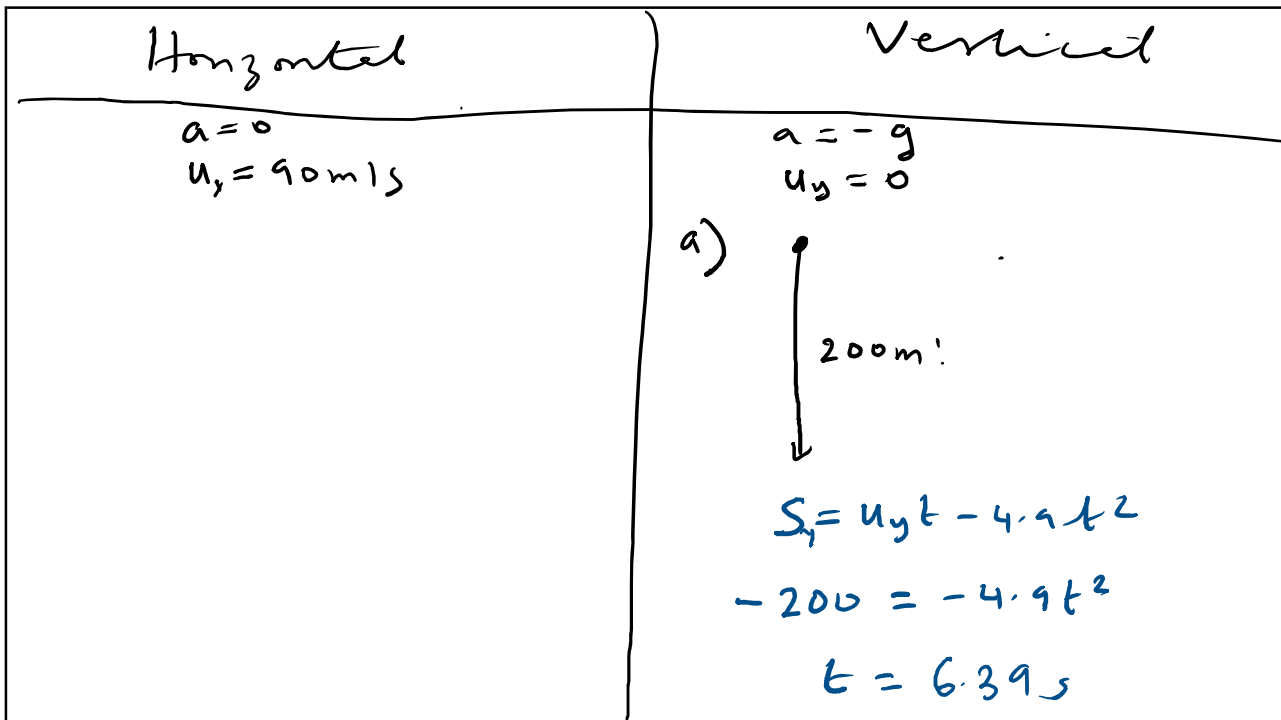 Horizontal
a = 0
uₓ = 90m/s
Vertical
a = - g
u_y = 0
a)
200m
S_y = u_y t - 4.9 t²
- 200 = - 4.9 t²
t = 6.39 s